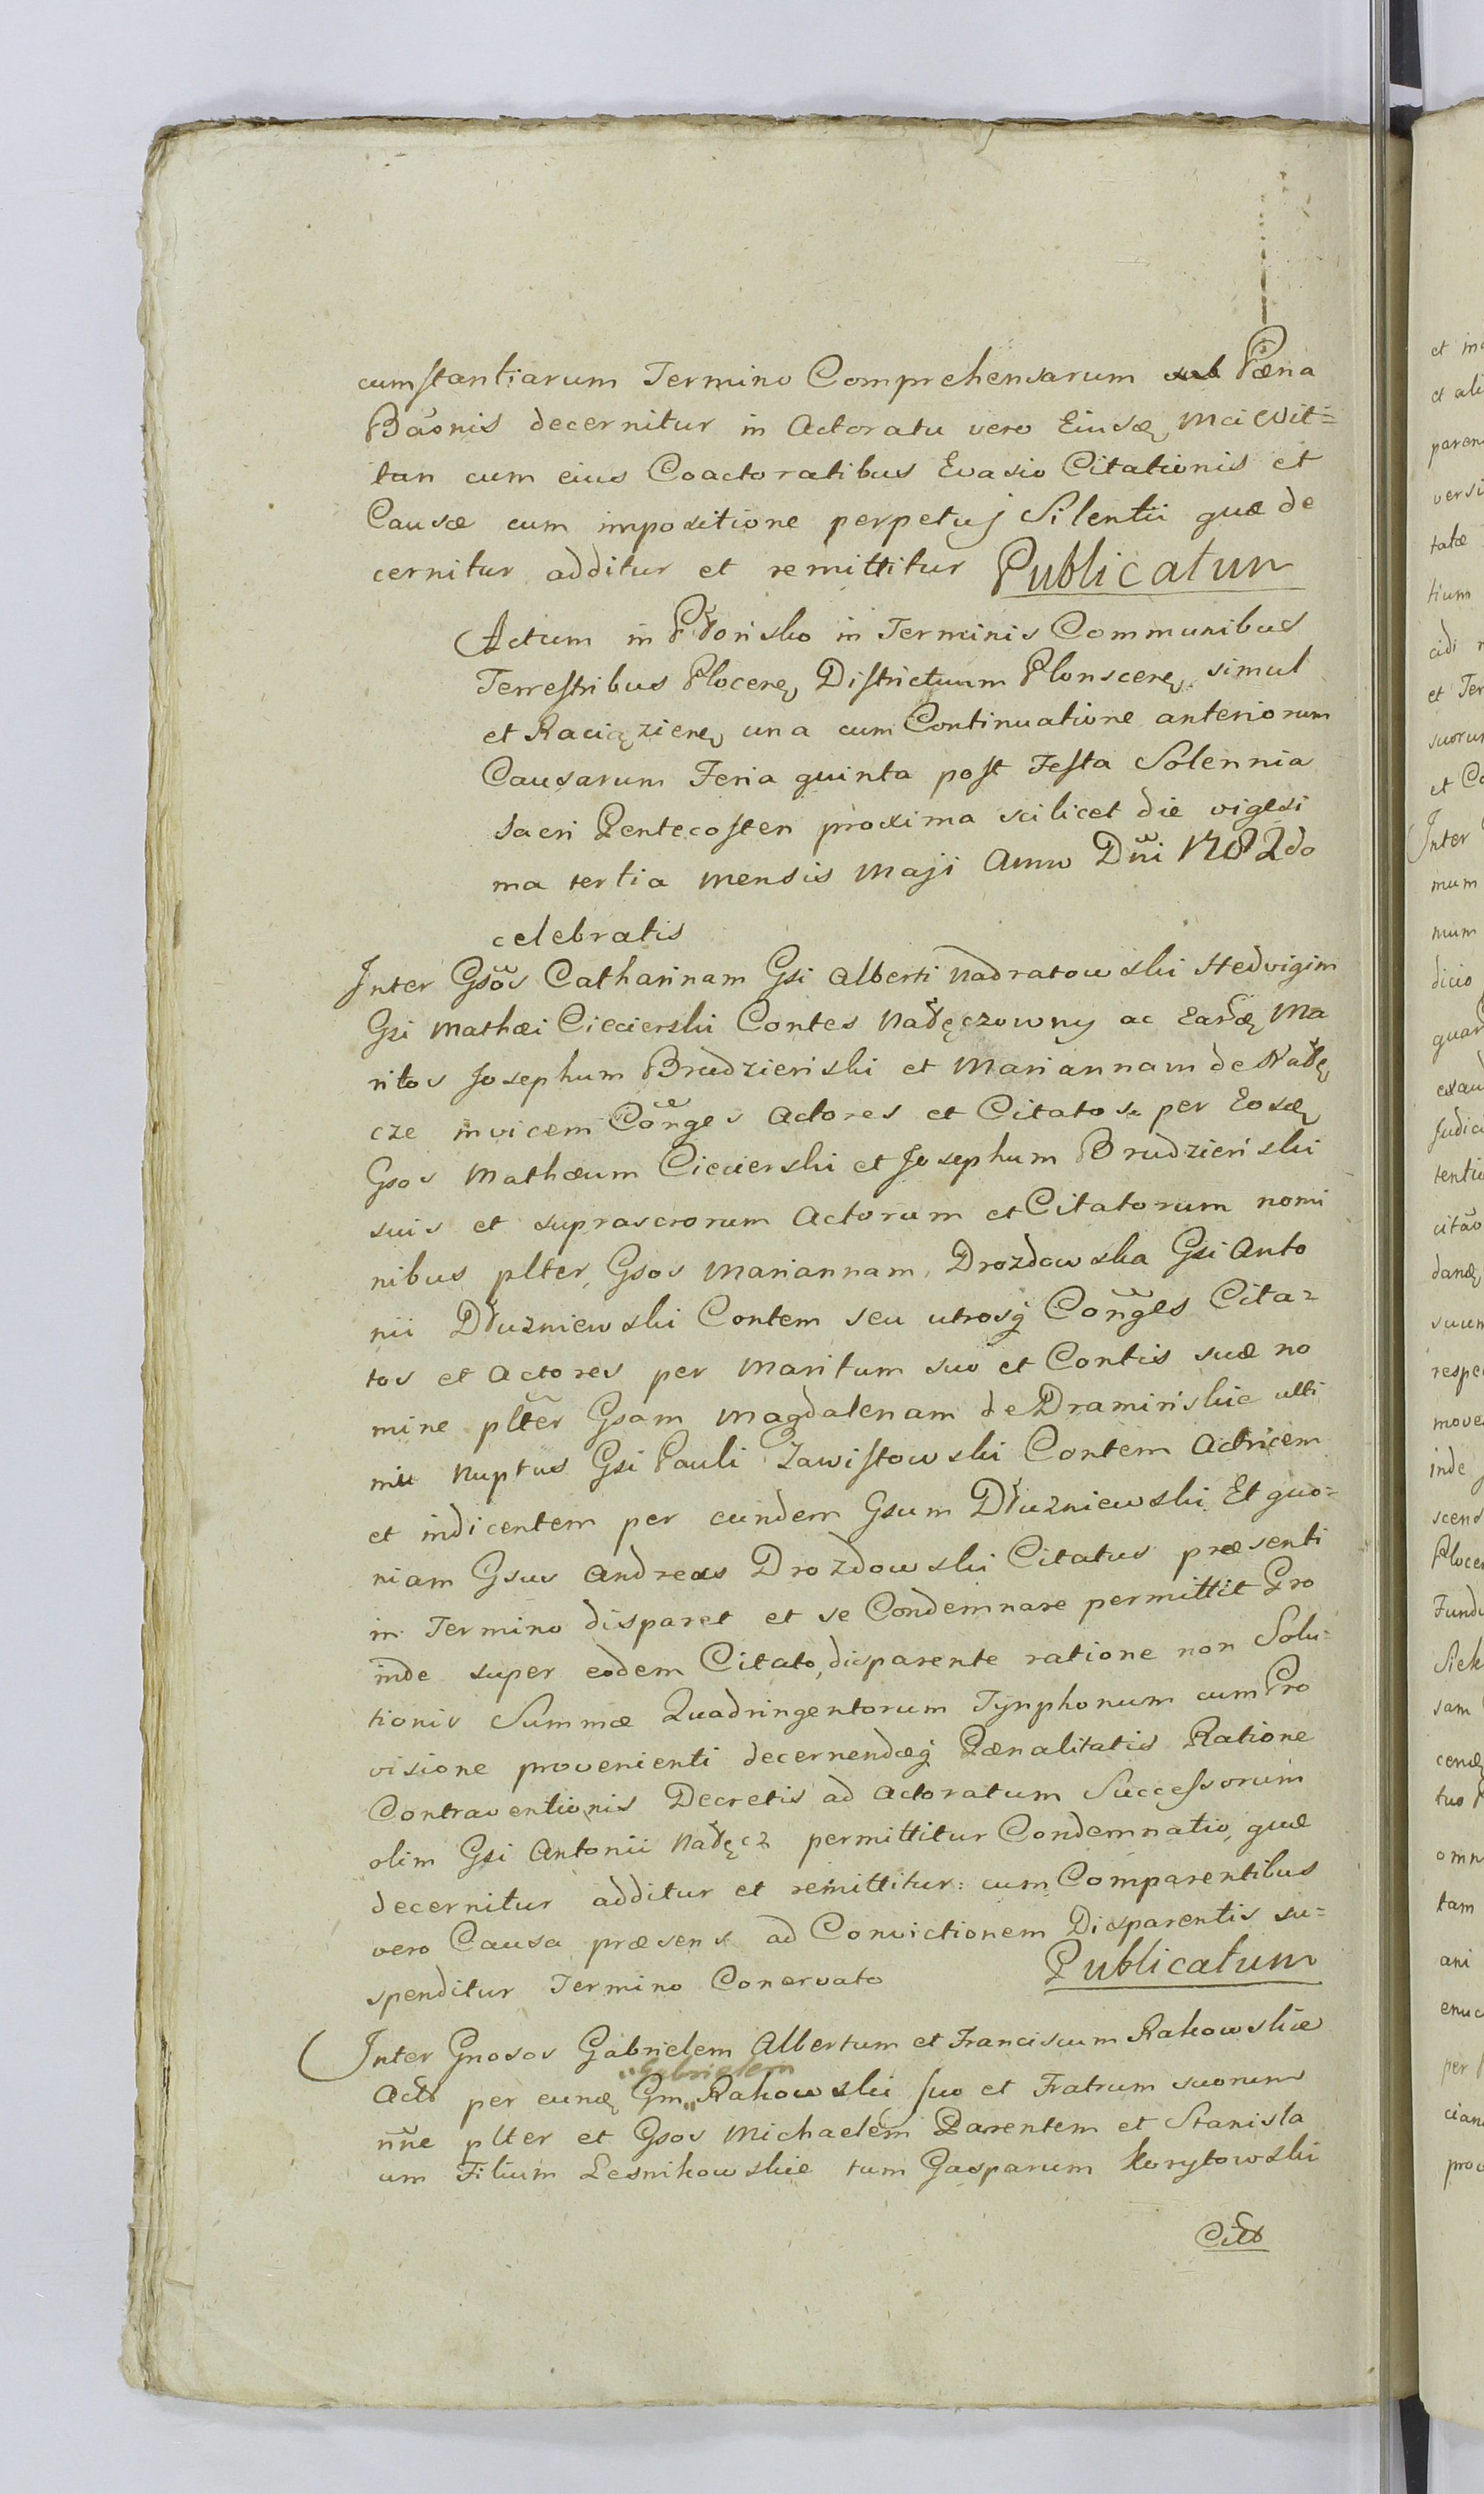 cumstantiarum Termino Comprehensarum sub Pæna
Baonis decernitur in Actoratu vero Eiusdę Mci Wit=
tan cum eius Coactoratibus Evasio Citationis et
Causæ cum impositione perpetuj Silentii quæ de
cernitur additur et remittitur Publicatum
Actum in Płońsko in Terminis Communibus
Terrestribus Plocenę Districtuum Plonscenę simul
et Raciązienę una cum Continuatione anteriorum
Causarum Feria quinta post Festa Solennia
sacri Pentecosten proxima scilicet die vigesi
ma tertia mensis Maji Anno Dñi 1782do
celebratis
Inter Gsos Catharinam Gsi Alberti Nadratowski Hedvigim
Gsi Mathæi Ciecierski Contes Nałęczowny ac Eardę Ma
ritos Josephum Brudzieński et Mariannam de Nałę
cze invicem Conges Actores et Citatos per Eosdę
Gsos Mathæum Ciecierski et Josephum Brudzieński
suis et suprascrorum Actorum et Citatorum nomi
nibus plter, Gsos Mariannam Drozdowska Gsi Anto
nii Dłużniewski Contem seu utrosq Conges Cita=
tos et Actores per Maritum suo et Contis suæ no
mine plter Gsam Magdalenam de Dramińskie ulti
mu Nuptus Gsi Pauli Zawistowski Contem Actricem
et indicentem per eundem Gsum Dłuzniewski Et quo=
niam Gsus Andreas Drozdowski Citatus præsenti
in Termino disparet et se Condemnare permittit Pro
inde super eodem Citato disparente ratione non Solu=
tionis Summæ Quadringentorum Tynphonum cum Pro
visione provenienti decernendæq Pænalitatis Ratione
Contraventionis Decretis ad Actoratum Successorum
olim Gsi Antonii Nałęcz permittitur Condemnatio, quæ
decernitur additur et remittitur: cum Comparentibus
vero Causa præsens ad Convictionem Disparentis su=
spenditur Termino Conervato Publicatum
Inter Gnosos Gabrielem Albertum et Franciscum Rakowskie
"Gabrielem
Acto per eundę Gm "Rakowski suo et Fratrum suorum
nñe plter et Gsos Michaelem Parentem et Stanisla
um Filium Lesnikowskie tum Gasparum Korytowski
Citto